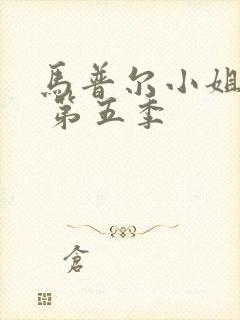 馬普尔小姐
第五季
倉